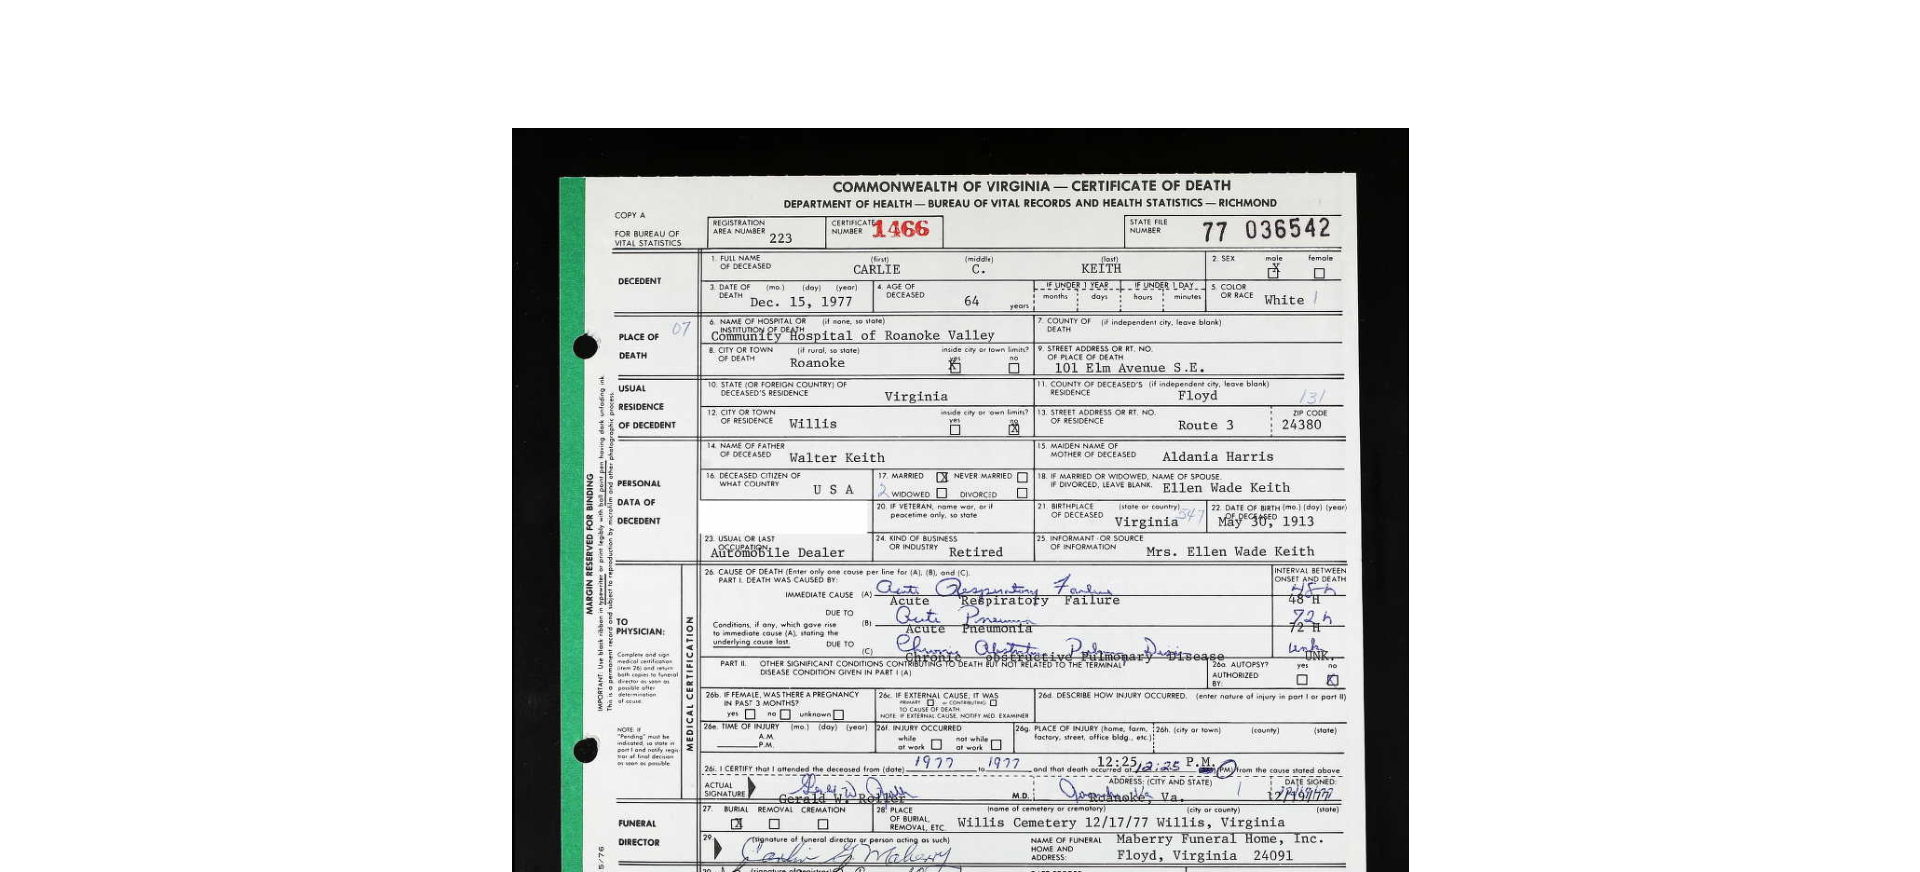 COMMONWEALTH OF VIRGINIA — CERTIFICATE OF DEATH
DEPARTMENT OF HEALTH — BUREAU OF VITAL RECORDS AND HEALTH STATISTICS — RICHMOND
COPY A
FOR BUREAU OF VITAL STATISTICS
REGISTRATION AREA NUMBER 223
CERTIFICATE NUMBER 1466
STATE FILE NUMBER 77 036542
DECEDENT
1. FULL NAME OF DECEASED (first) CARLIE (middle) C. (last) KEITH
2. SEX male X female
3. DATE OF DEATH (mo.) (day) (year) Dec. 15, 1977
4. AGE OF DECEASED 64 years
IF UNDER 1 YEAR months days
IF UNDER 1 DAY hours minutes
5. COLOR OR RACE White 1
PLACE OF DEATH 07
6. NAME OF HOSPITAL OR INSTITUTION OF DEATH (if none, so state) Community Hospital of Roanoke Valley
7. COUNTY OF DEATH (if independent city, leave blank)
8. CITY OR TOWN OF DEATH (if rural, so state) Roanoke inside city or town limits? yes X no
9. STREET ADDRESS OR RT. NO. OF PLACE OF DEATH 101 Elm Avenue S.E.
USUAL RESIDENCE OF DECEDENT
10. STATE (OR FOREIGN COUNTRY) OF DECEASED'S RESIDENCE Virginia
11. COUNTY OF DECEASED'S RESIDENCE (if independent city, leave blank) Floyd 131
12. CITY OR TOWN OF RESIDENCE Willis inside city or town limits? yes no X
13. STREET ADDRESS OR RT. NO. OF RESIDENCE Route 3 ZIP CODE 24380
PERSONAL DATA OF DECEDENT
14. NAME OF FATHER OF DECEASED Walter Keith
15. MAIDEN NAME OF MOTHER OF DECEASED Aldania Harris
16. DECEASED CITIZEN OF WHAT COUNTRY U S A
17. MARRIED X NEVER MARRIED 2 WIDOWED DIVORCED
18. IF MARRIED OR WIDOWED, NAME OF SPOUSE. IF DIVORCED, LEAVE BLANK. Ellen Wade Keith
20. IF VETERAN, name war, or if peacetime only, so state
21. BIRTHPLACE OF DECEASED (state or country) Virginia 547
22. DATE OF BIRTH (mo.) (day) (year) OF DECEASED May 30, 1913
23. USUAL OR LAST OCCUPATION Automobile Dealer
24. KIND OF BUSINESS OR INDUSTRY Retired
25. INFORMANT OR SOURCE OF INFORMATION Mrs. Ellen Wade Keith
MARGIN RESERVED FOR BINDING
MEDICAL CERTIFICATION
TO PHYSICIAN:
Complete and sign medical certification (item 26) and return both copies to funeral director as soon as possible after determination of cause.
NOTE: If "Pending" must be indicated, so state in part I and notify registrar of final decision as soon as possible.
26. CAUSE OF DEATH (Enter only one cause per line for (A), (B), and (C).
PART I. DEATH WAS CAUSED BY:
INTERVAL BETWEEN ONSET AND DEATH
IMMEDIATE CAUSE (A) Acute Respiratory Failure 48 h
Acute Respiratory Failure 48 H
DUE TO (B) Acute Pneumonia 72 h
Acute Pneumonia 72 H
Conditions, if any, which gave rise to immediate cause (A), stating the underlying cause last.
DUE TO (C) Chronic Obstructive Pulmon Disease unk
Chronic obstructive Pulmonary Disease UNK.
PART II. OTHER SIGNIFICANT CONDITIONS CONTRIBUTING TO DEATH BUT NOT RELATED TO THE TERMINAL DISEASE CONDITION GIVEN IN PART I (A)
26a. AUTOPSY? AUTHORIZED BY: yes no X
26b. IF FEMALE, WAS THERE A PREGNANCY IN PAST 3 MONTHS? yes no unknown
26c. IF EXTERNAL CAUSE, IT WAS PRIMARY or CONTRIBUTING TO CAUSE OF DEATH. NOTE: IF EXTERNAL CAUSE, NOTIFY MED. EXAMINER
26d. DESCRIBE HOW INJURY OCCURRED. (enter nature of injury in part I or part II)
26e. TIME OF INJURY (mo.) (day) (year) A.M. P.M.
26f. INJURY OCCURRED while at work not while at work
26g. PLACE OF INJURY (home, farm, factory, street, office bldg., etc.)
26h. (city or town) (county) (state)
26i. I CERTIFY that I attended the deceased from (date) 1977 to 1977 and that death occurred at 12:25 P.M. 12:25 (PM) from the cause stated above
ACTUAL SIGNATURE Gerald W. Roller M.D.
ADDRESS: (CITY AND STATE) Roanoke, Va. 1
DATE SIGNED: 12/19/77
FUNERAL DIRECTOR
27. BURIAL X REMOVAL CREMATION
28. PLACE OF BURIAL, REMOVAL, ETC. (name of cemetery or crematory) (city or county) (state) Willis Cemetery 12/17/77 Willis, Virginia
29. (signature of funeral director or person acting as such) Carlin G. Maberry
NAME OF FUNERAL HOME AND ADDRESS: Maberry Funeral Home, Inc. Floyd, Virginia 24091
5/76